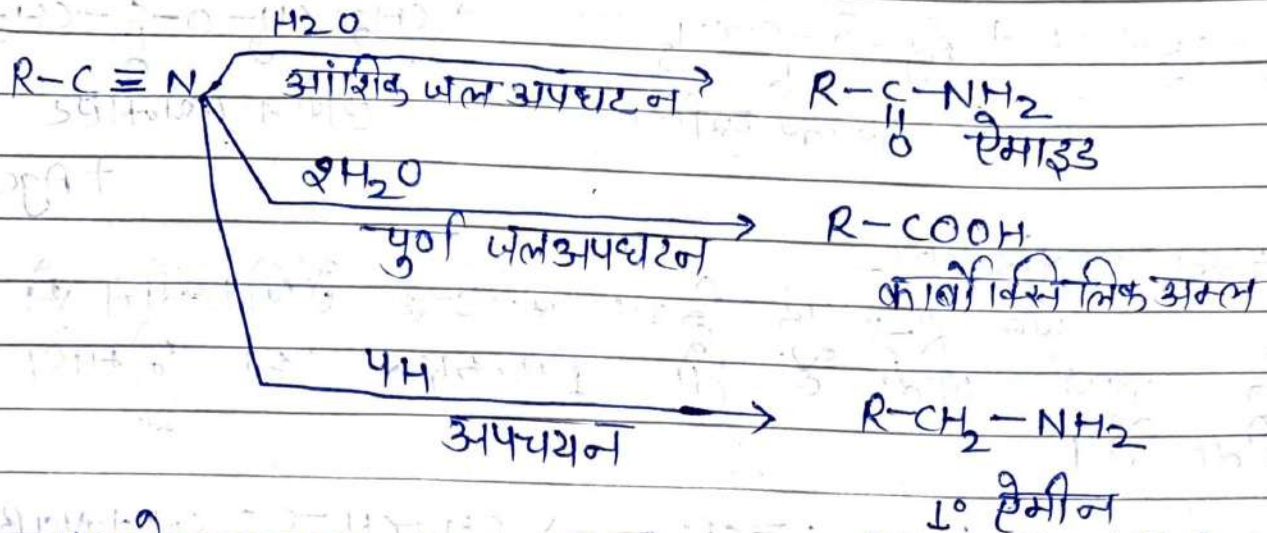 H2O
R-C≡N आंशिक जल अपघटन R-C-NH2
||
O ऐमाइड
2H2O
पुर्ण जलअपघटन R-COOH
कार्बोक्सिलिक अम्ल
4H
अपचयन R-CH2-NH2
1° ऐमीन